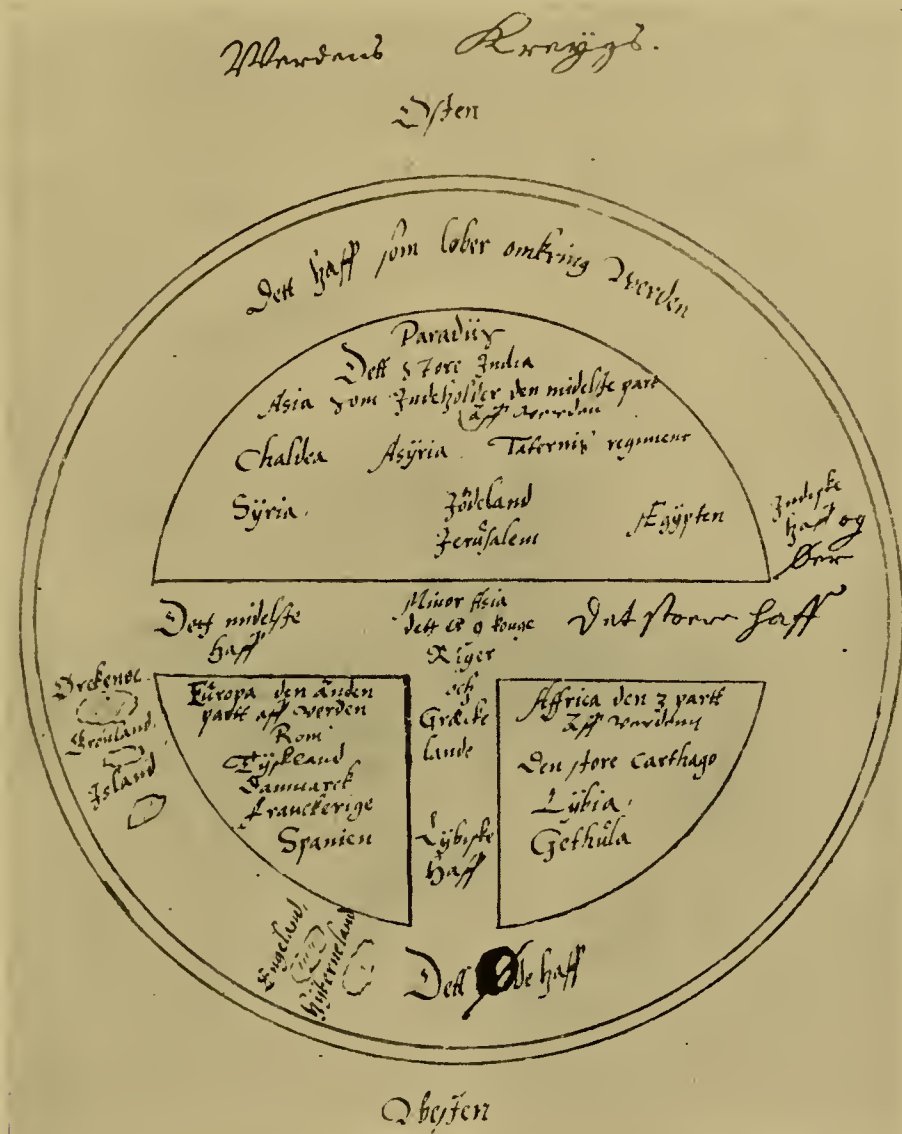 Werdens Kreÿgs.
Østen
Dett haff som løber omkring Werden
Paradiis
Dett store India
Asia som Indeholder den midelste part
aff werden
Chaldea Asÿria Taterniss regiment
Sÿria. Jødeland Ægÿpten
Jerusalem
Indiske
haff og
Øer
Dett midelste
haff
Minor Asia
dett er 9 konge
Riger
och
Græcke
lande
Det store haff
Orckenøe.
Grønland.
Island
Europa den anden
partt aff werden
Rom
Tÿskland
Danmarck
Franckerige
Spanien
Lÿbiske
haff
Affrica den 3 partt
aff werdens
Den store Carthago
Lÿbia.
Gethula
Engeland.
Hÿberneland
Dett øde haff
Vesten